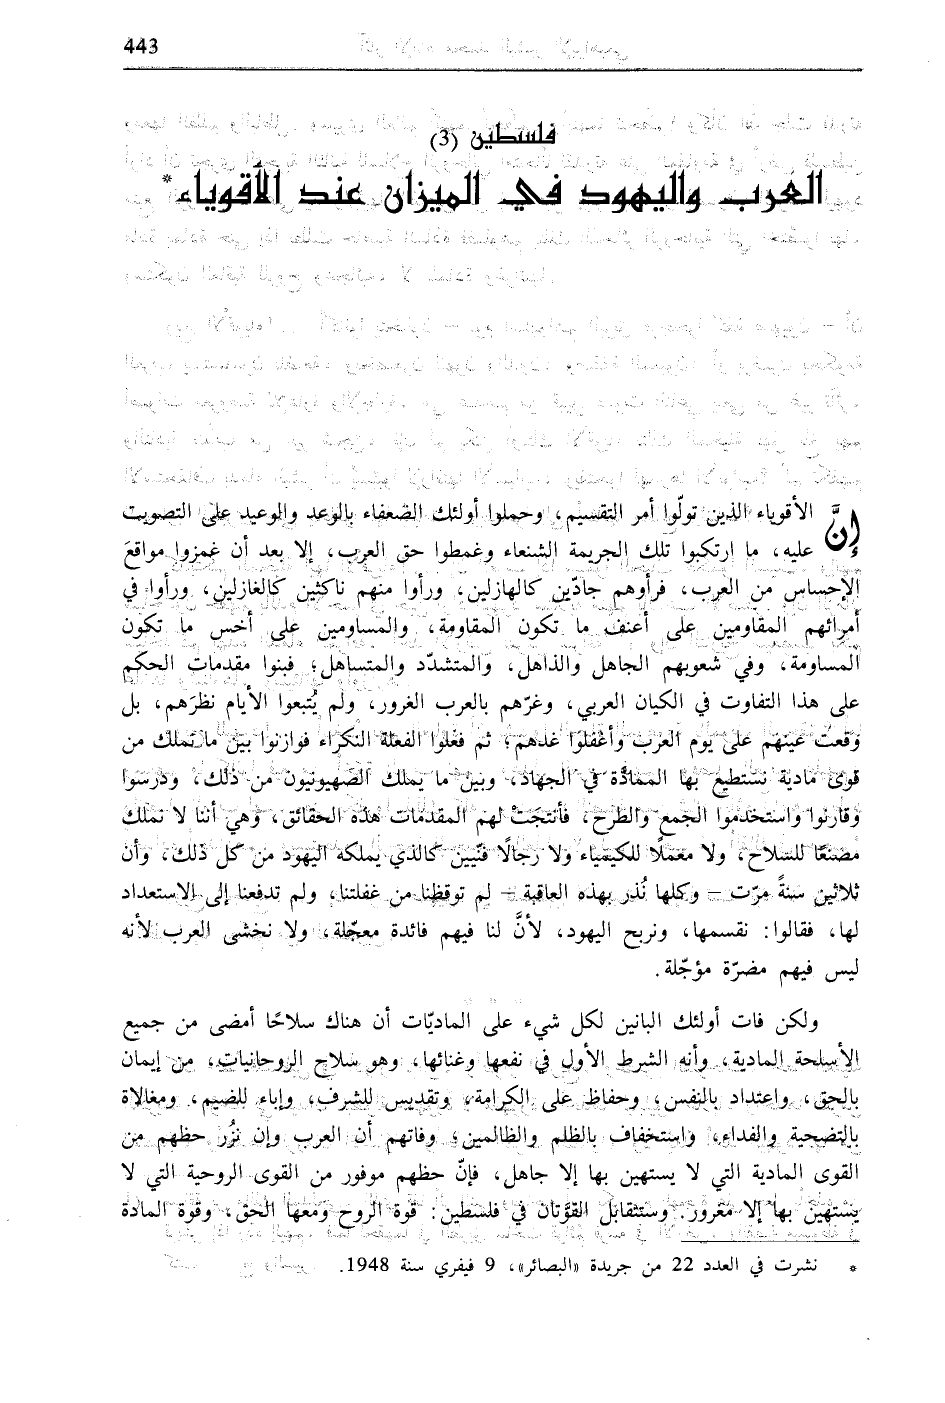 443
فلسطين (3)
العرب واليهود في الميزان عند الأقوياء*
إنَّ الأقوياء الذين تولّوا أمر التقسيم، وحملوا أولئك الضعفاء بالوعد والوعيد على التصويت
عليه، ما ارتكبوا تلك الجريمة الشنعاء وغمطوا حق العرب، إلا بعد أن غمزوا مواقعَ
الإحساس من العرب، فرأوهم جادّين كالهازلين، ورأوا منهم ناكثين كالغازلين، ورأوا في
أمرائهم المقاومين على أعنف ما تكون المقاومة، والمساومين على أخس ما تكون
المساومة، وفي شعوبهم الجاهل والذاهل، والمتشدّد والمتساهل؛ فبنوا مقدمات الحكم
على هذا التفاوت في الكيان العربي، وغرّهم بالعرب الغرور، ولم يُتبعوا الأيام نظرَهم، بل
وقعتْ عينهم على يوم العرب وأغفلوا غدهم؛ ثم فعلوا الفعلة النكراء فوازنوا بين ما نملك من
قوى مادية نستطيع بها الممادّة في الجهاد، وبين ما يملك الصهيونيون من ذلك، ودرسوا
وقارنوا واستخدموا الجمع والطرح، فأنتجتْ لهم المقدمات هذه الحقائق، وهي أننا لا نملك
مصنعًا للسلاح، ولا معملًا للكيمياء ولا رجالًا فنّيين كالذي يملكه اليهود من كل ذلك، وأن
ثلاثين سنةً مرّت – وكلها نُذر بهذه العاقبة – لم توقظنا من غفلتنا، ولم تدفعنا إلى الاستعداد
لها، فقالوا: نقسمها، ونربح اليهود، لأنَّ لنا فيهم فائدة معجّلة، ولا نخشى العرب لأنه
ليس فيهم مضرّة مؤجّلة.
ولكن فات أولئك البانين لكل شيء على الماديّات أن هناك سلاحًا أمضى من جميع
الأسلحة المادية، وأنه الشرط الأول في نفعها وغنائها، وهو سلاح الروحانيات، من إيمان
بالحق، واعتداد بالنفس، وحفاظ على الكرامة، وتقديس للشرف، وإباء للضيم، ومغالاة
بالتضحية والفداء، واستخفاف بالظلم والظالمين؛ وفاتهم أن العرب وإن نزُر حظهم من
القوى المادية التي لا يستهين بها إلا جاهل، فإنّ حظهم موفور من القوى الروحية التي لا
يستهين بها إلا مغرور. وستتقابل القوّتان في فلسطين: قوة الروح ومعها الحق، وقوة المادة
* نشرت في العدد 22 من جريدة «البصائر»، 9 فيفري سنة 1948.